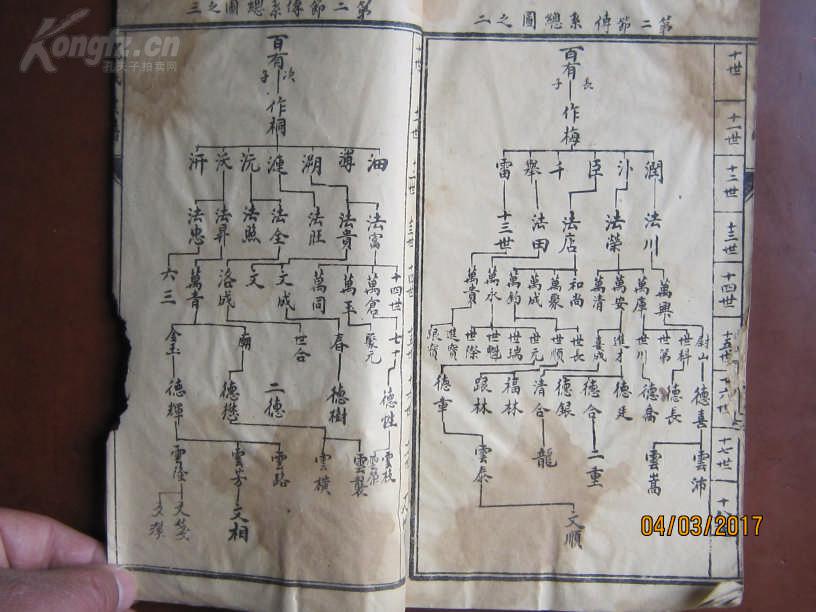 第二節傳系總圖之二
十世
十一世
十二世
十三世
十四世
十五世
十六世
十七世
百有
長子
作梅
潤 汴 臣 千 舉 雷
法川 法榮 法店 法田 十三世
萬興 萬庫 萬安 萬清 和尚 萬聚 萬成 萬鈞 萬永 萬貴
尉山 世科 世第 世川 進才 喜成 世長 世順 世元 世瑞 世魁 世際 進寶
德喜 德長 德喬 德廷 德合 德銀 清合 福林 跟林 德章
雲沛 雲嵩 二重 龍 雲泰
文順
第二節傳系總圖之三
百有
次子
作桐
油 溥 溯 漣 沅 沃 汧
法富 法貴 法旺 法全 法照 法昇 法忠
十四世 萬倉 萬年 萬同 文成 文 洛成 萬青 六三
七十 聚元 春 世合 廟 金玉
德性 德樹 二德 德懋 德輝
雲枝 雲製 雲橫 雲路 雲芳
文相
Kongfz.cn
孔夫子拍卖网
04/03/2017